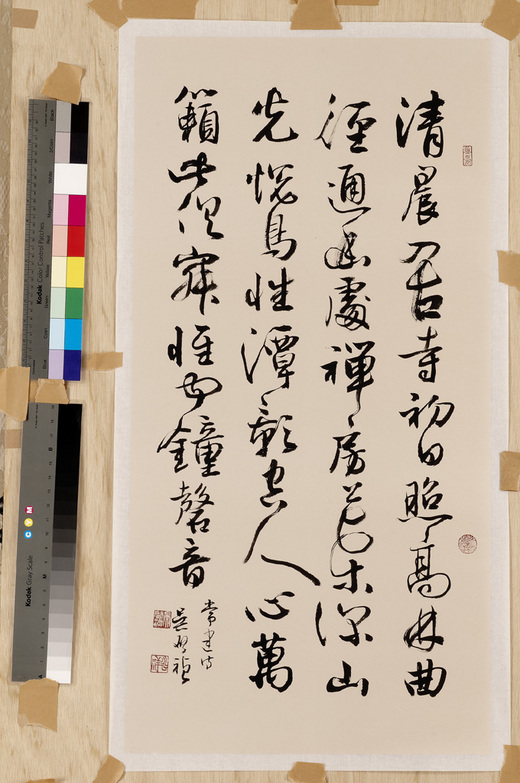 清晨入古寺初日照高林曲
徑通幽處禪房花木深山
光悅鳥性潭影空人心萬
籟此俱寂惟聞鐘磬音
常建詩
吳
Kodak Color Control Patches
Kodak Gray Scale
C Y M